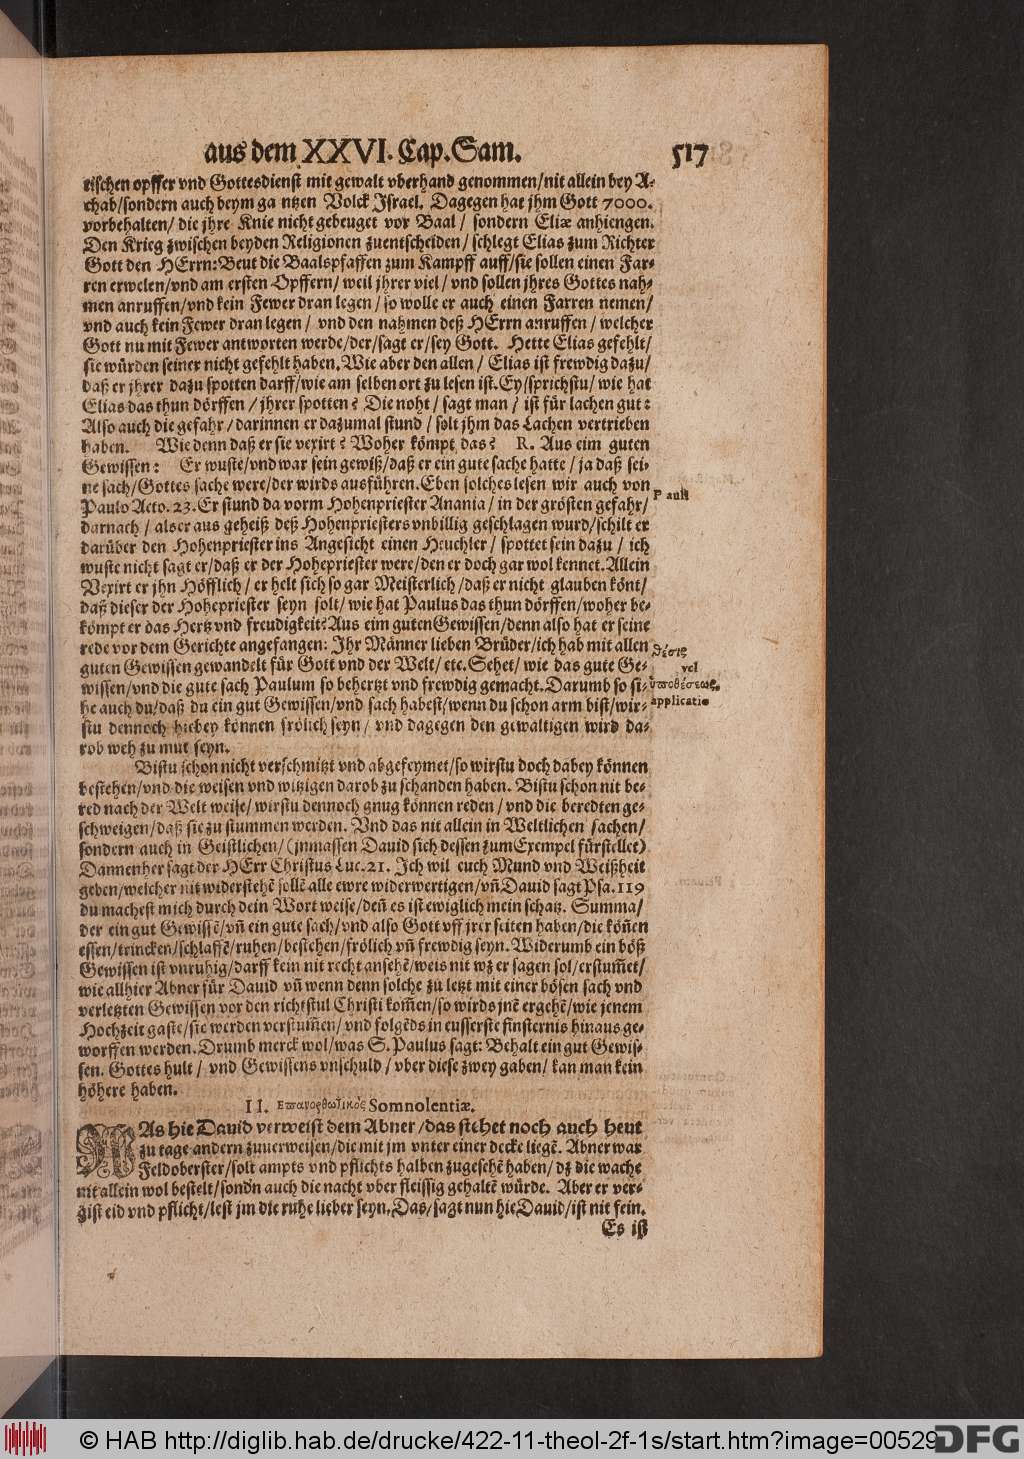 aus dem XXVI. Cap. Sam. 517
rischen opffer vnd Gottesdienst mit gewalt vberhand genommen/nit allein bey A-
chab/sondern auch beym ga ntzen Volck Jsrael. Dagegen hat jhm Gott 7000.
vorbehalten/ die jhre Knie nicht gebeuget vor Baal / sondern Eliæ anhiengen.
Den Krieg zwischen beyden Religionen zuentscheiden/ schlegt Elias zum Richter
Gott den HErrn: Beut die Baalspfaffen zum Kampff auff/sie sollen einen Far-
ren erwelen/vnd am ersten Opffern/ weil jhrer viel/ vnd sollen jhres Gottes nah-
men anruffen/vnd kein Fewer dran legen/ so wolle er auch einen Farren nemen/
vnd auch kein Fewer dran legen/ vnd den nahmen deß HErrn anruffen/ welcher
Gott nu mit Fewer antworten werde/der/sagt er/sey Gott. Hette Elias gefehlt/
sie würden seiner nicht gefehlt haben. Wie aber den allen/ Elias ist frewdig dazu/
daß er jhrer dazu spotten darff/wie am selben ort zu lesen ist. Ey/sprichstu/ wie hat
Elias das thun dörffen/ jhrer spotten? Die noht/ sagt man/ ist für lachen gut:
Also auch die gefahr/darinnen er dazumal stund/ solt jhm das Lachen vertrieben
haben. Wie denn daß er sie vexirt? Woher kömpt das? R. Aus eim guten
Gewissen: Er wuste/vnd war sein gewiß/daß er ein gute sache hatte/ ja daß sei-
ne sach/Gottes sache were/der wirds ausführen. Eben solches lesen wir auch von
Paulo Acto. 23. Er stund da vorm Hohenpriester Anania/ in der grösten gefahr/
Pauli
darnach/ als er aus geheiß deß Hohenpriesters vnbillig geschlagen wurd/schilt er
darüber den Hohenpriester ins Angesicht einen Heuchler/ spottet sein dazu/ ich
wuste nicht sagt er/daß er der Hohepriester were/den er doch gar wol kennet. Allein
Vexirt er jhn Höfflich/ er helt sich so gar Meisterlich/daß er nicht glauben könt/
daß dieser der Hohepriester seyn solt/ wie hat Paulus das thun dörffen/woher be-
kömpt er das Hertz vnd freudigkeit? Aus eim guten Gewissen/denn also hat er seine
rede vor dem Gerichte angefangen: Jhr Männer lieben Brüder/ich hab mit allen
guten Gewissen gewandelt für Gott vnd der Welt/ etc. Sehet/ wie das gute Ge-
wissen/vnd die gute sach Paulum so behertzt vnd frewdig gemacht. Darumb so si-
he auch du/daß du ein gut Gewissen/vnd sach habest/wenn du schon arm bist/wir-
θέσις
vel
ὑποθέσεως
applicatio
stu dennoch hiebey können frölich seyn/ vnd dagegen den gewaltigen wird da-
rob weh zu mut seyn.
Bistu schon nicht verschmitzt vnd abgefeymet/so wirstu doch dabey können
bestehen/vnd die weisen vnd witzigen darob zu schanden haben. Bistu schon nit be-
red nach der Welt weise/ wirstu dennoch gnug können reden/ vnd die beredten ge-
schweigen/daß sie zu stummen werden. Vnd das nit allein in Weltlichen sachen/
sondern auch in Geistlichen/ (jnmassen Dauid sich dessen zum Exempel fürstellet)
Dannenher sagt der HErr Christus Luc. 21. Jch wil euch Mund vnd Weißheit
geben/welcher nit widerstehē sollē alle ewre widerwertigen/vñ Dauid sagt Psa. 119
du machest mich durch dein Wort weise/deñ es ist ewiglich mein schatz. Summa/
der ein gut Gewissē/vñ ein gute sach/vnd also Gott vff jrer seiten haben/die köñen
essen/trincken/schlaffē/ruhen/bestehen/frölich vñ frewdig seyn. Widerumb ein böß
Gewissen ist vnruhig/darff kein nit recht ansehē/weis nit wz er sagen sol/erstum̃et/
wie allhier Abner für Dauid vñ wenn denn solche zu letzt mit einer bösen sach vnd
verletzten Gewissen vor den richtstul Christi kom̃en/so wirds jnē ergehē/wie jenem
Hochzeit gaste/sie werden verstum̃en/ vnd folgēds in eusserste finsternis hinaus ge-
worffen werden. Drumb merck wol/was S. Paulus sagt: Behalt ein gut Gewis-
sen. Gottes hult/ vnd Gewissens vnschuld/ vber diese zwey gaben/ kan man kein
höhere haben.
II. Επανορθωτικὸς Somnolentiæ.
WAs hie Dauid verweist dem Abner/das stehet noch auch heut
zu tage andern zuuerweisen/die mit jm vnter einer decke liegē. Abner war
Feldoberster/solt ampts vnd pflichts halben zugesehē haben/dz die wache
nit allein wol bestelt/sondn auch die nacht vber fleissig gehaltē würde. Aber er ver-
gist eid vnd pflicht/lest jm die ruhe lieber seyn. Das/sagt nun hie Dauid/ist nit fein.
Es ist
© HAB http://diglib.hab.de/drucke/422-11-theol-2f-1s/start.htm?image=00529
DFG